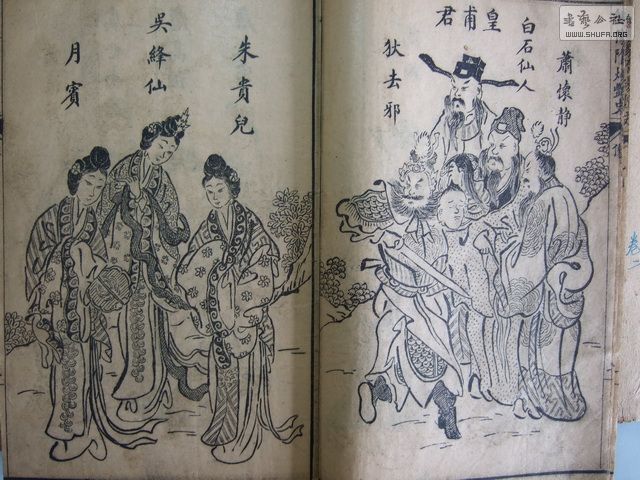 书艺公社
WWW.SHUFA.ORG
蕭懷静
白石仙人
皇甫君
狄去邪
朱貴兒
吳絳仙
月賓
卷